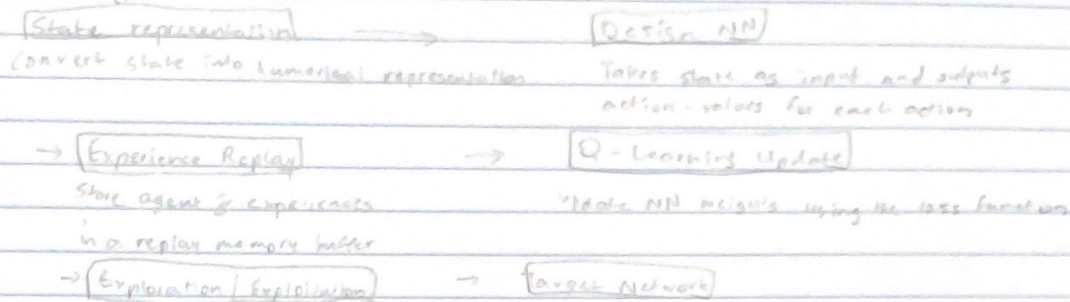 State representation → Design NN
Convert state into numerical representation Takes state as input and outputs
action-values for each action
→ Experience Replay → Q-Learning Update
Store agent's experiences Update NN weights using the loss function
in a replay memory buffer
→ Exploration / Exploitation → Target Network